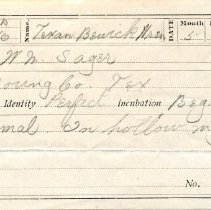 6 NAME Texan Bewick Wren DATE Month 5
W N Sager
Young Co. Tex
Identity Perfect Incubation Beg
mal In hollow
No.